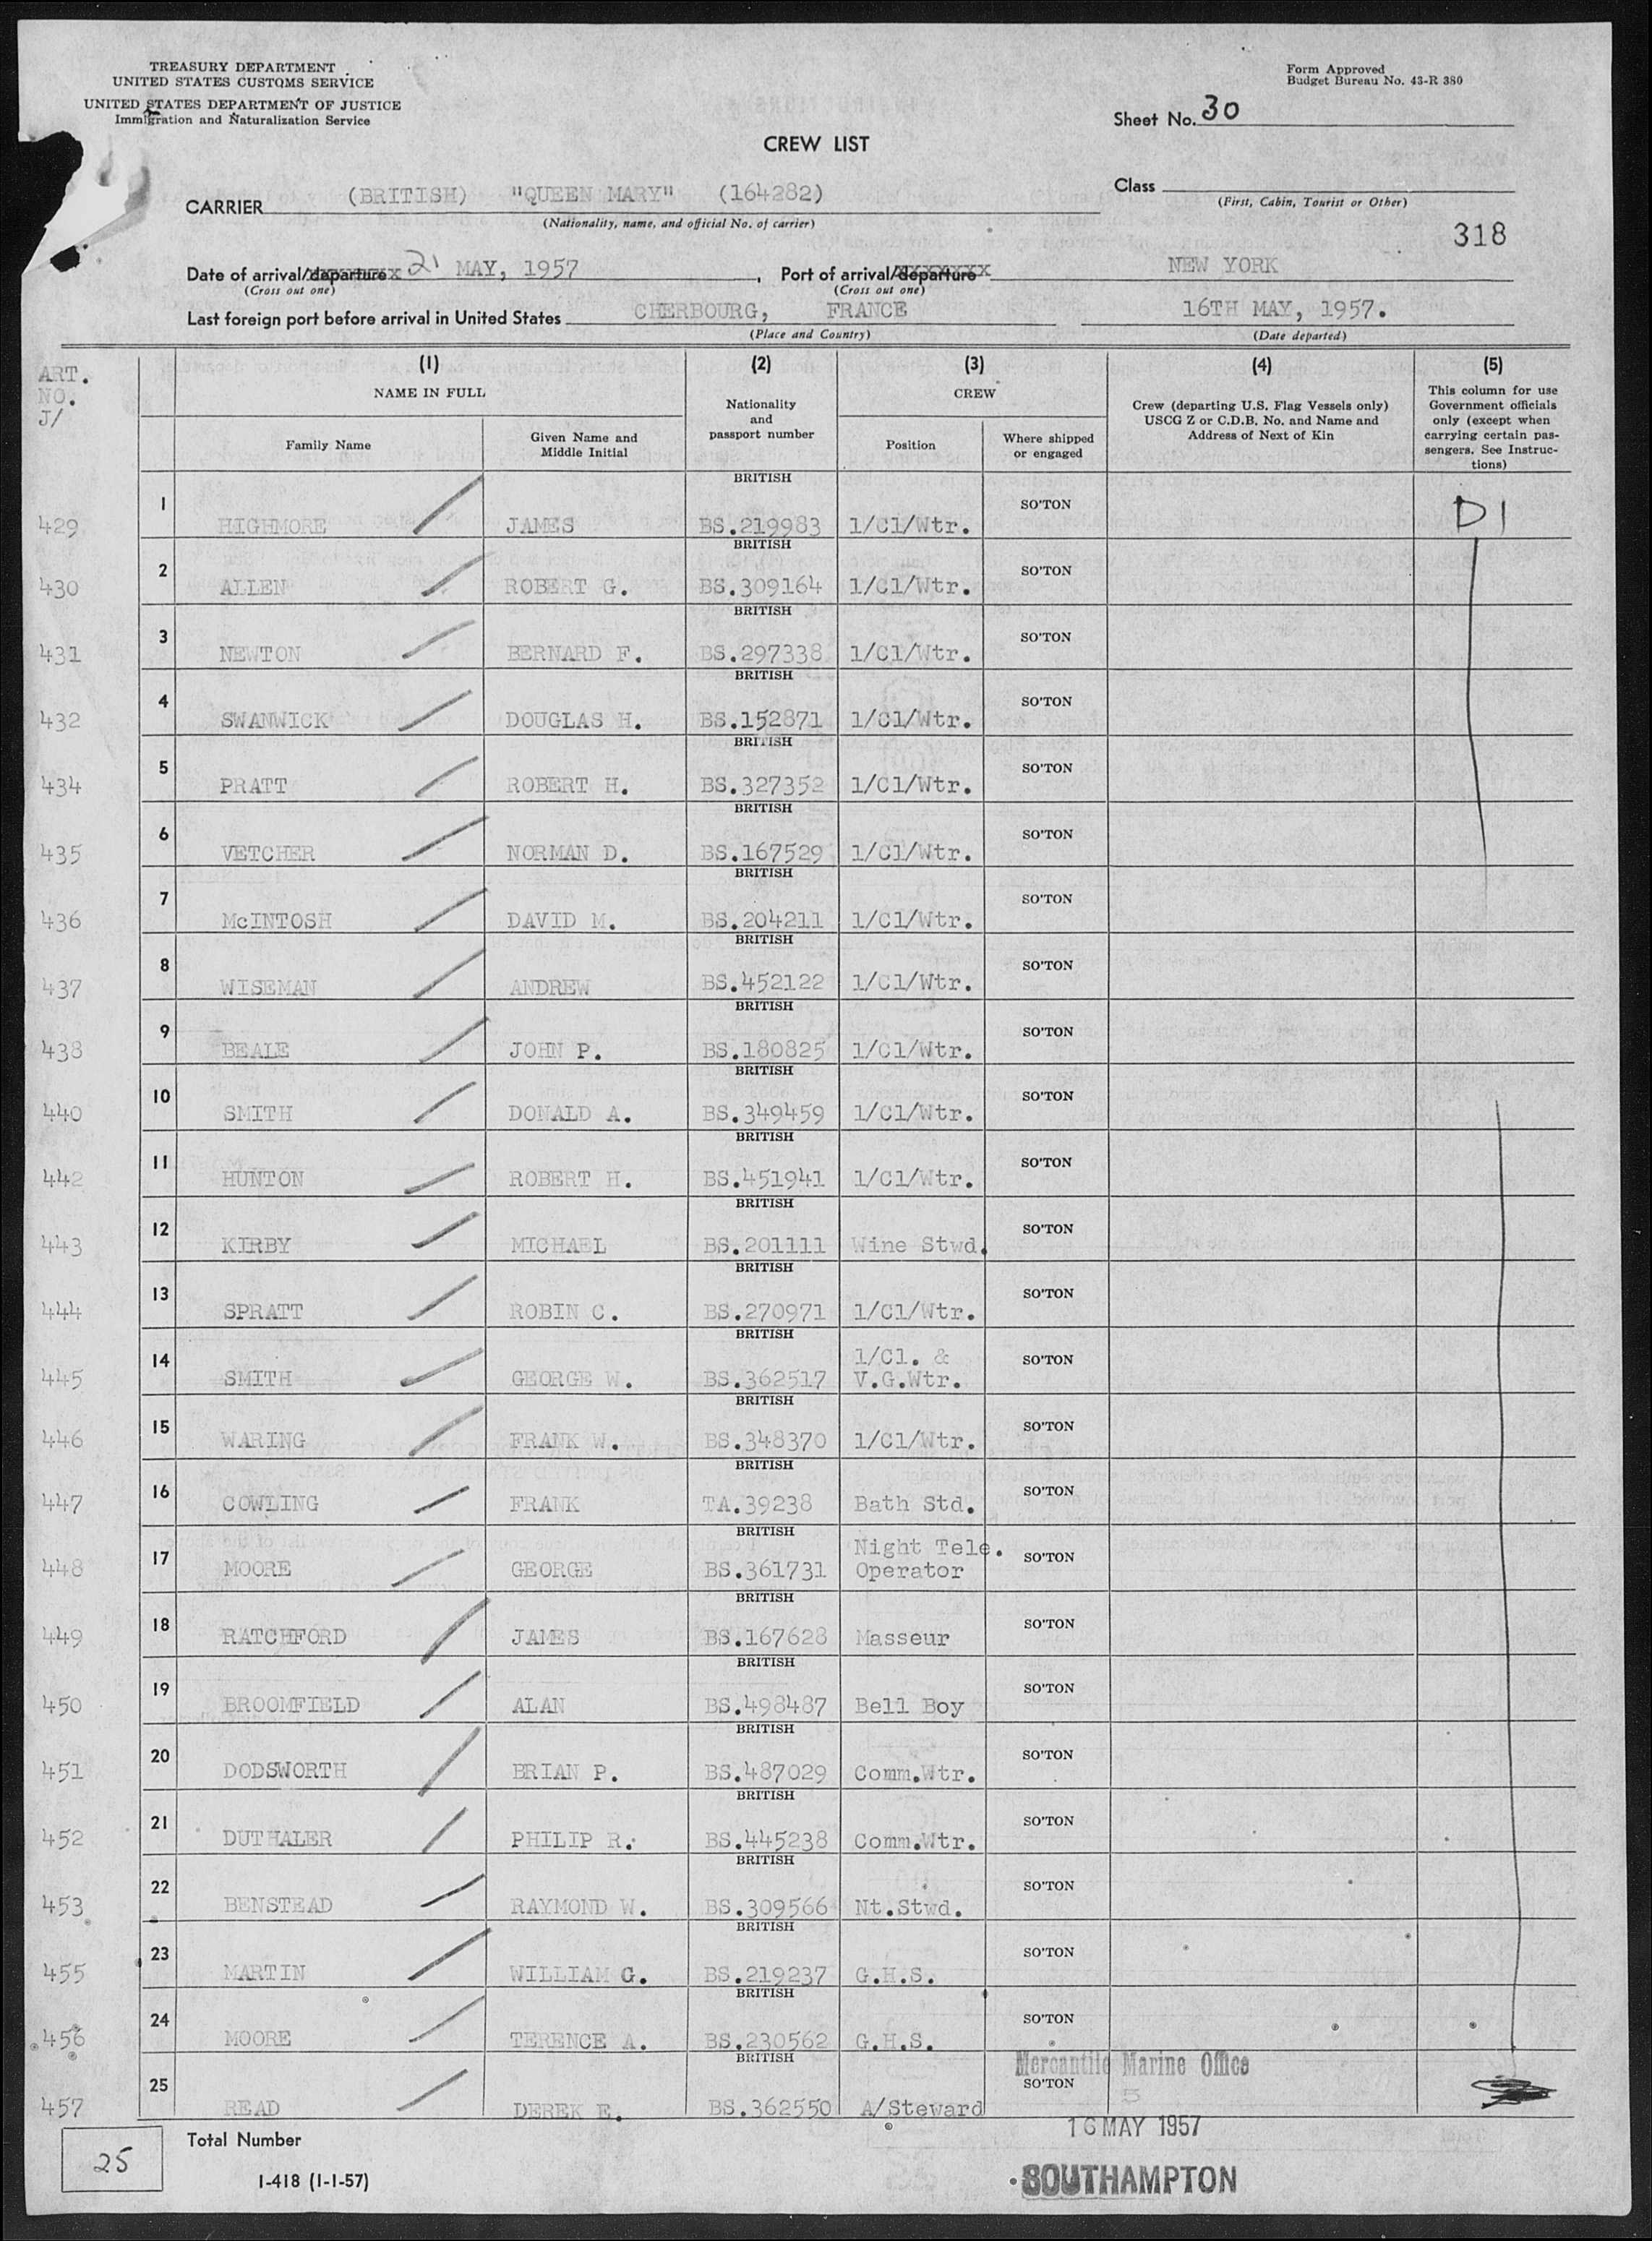 TREASURY DEPARTMENT
UNITED STATES CUSTOMS SERVICE
UNITED STATES DEPARTMENT OF JUSTICE
Immigration and Naturalization Service
Form Approved
Budget Bureau No. 43-R 380
Sheet No. 30
CREW LIST
Class
(First, Cabin, Tourist or Other)
CARRIER (BRITISH) "QUEEN MARY" (164282)
(Nationality, name, and official No. of carrier)
318
Date of arrival/departure 21 MAY, 1957, Port of arrival/departure NEW YORK
(Cross out one) (Cross out one)
Last foreign port before arrival in United States CHERBOURG, FRANCE 16TH MAY, 1957.
(Place and Country) (Date departed)
ART. NO. J/
(1) NAME IN FULL
Family Name
Given Name and Middle Initial
(2) Nationality and passport number
(3) CREW
Position
Where shipped or engaged
(4) Crew (departing U.S. Flag Vessels only) USCG Z or C.D.B. No. and Name and Address of Next of Kin
(5) This column for use Government officials only (except when carrying certain passengers. See Instructions)
429 1 HIGHMORE JAMES BRITISH BS.219983 1/Cl/Wtr. SO'TON D1
430 2 ALLEN ROBERT G. BRITISH BS.309164 1/Cl/Wtr. SO'TON
431 3 NEWTON BERNARD F. BRITISH BS.297338 1/Cl/Wtr. SO'TON
432 4 SWANWICK DOUGLAS H. BRITISH BS.152871 1/Cl/Wtr. SO'TON
434 5 PRATT ROBERT H. BRITISH BS.327352 1/Cl/Wtr. SO'TON
435 6 VETCHER NORMAN D. BRITISH BS.167529 1/Cl/Wtr. SO'TON
436 7 McINTOSH DAVID M. BRITISH BS.204211 1/Cl/Wtr. SO'TON
437 8 WISEMAN ANDREW BRITISH BS.452122 1/Cl/Wtr. SO'TON
438 9 BEALE JOHN P. BRITISH BS.180825 1/Cl/Wtr. SO'TON
440 10 SMITH DONALD A. BRITISH BS.349459 1/Cl/Wtr. SO'TON
442 11 HUNTON ROBERT H. BRITISH BS.451941 1/Cl/Wtr. SO'TON
443 12 KIRBY MICHAEL BRITISH BS.201111 Wine Stwd. SO'TON
444 13 SPRATT ROBIN C. BRITISH BS.270971 1/Cl/Wtr. SO'TON
445 14 SMITH GEORGE W. BRITISH BS.362517 1/Cl. & V.G.Wtr. SO'TON
446 15 WARING FRANK W. BRITISH BS.348370 1/Cl/Wtr. SO'TON
447 16 COWLING FRANK BRITISH TA.39238 Bath Std. SO'TON
448 17 MOORE GEORGE BRITISH BS.361731 Night Tele. Operator SO'TON
449 18 RATCHFORD JAMES BRITISH BS.167628 Masseur SO'TON
450 19 BROOMFIELD ALAN BRITISH BS.498487 Bell Boy SO'TON
451 20 DODSWORTH BRIAN P. BRITISH BS.487029 Comm.Wtr. SO'TON
452 21 DUTHALER PHILIP R. BRITISH BS.445238 Comm.Wtr. SO'TON
453 22 BENSTEAD RAYMOND W. BRITISH BS.309566 Nt.Stwd. SO'TON
455 23 MARTIN WILLIAM G. BRITISH BS.219237 G.H.S. SO'TON
456 24 MOORE TERENCE A. BRITISH BS.230562 G.H.S. SO'TON
457 25 READ DEREK E. BRITISH BS.362550 A/Steward SO'TON
Mercantile Marine Office
5
16 MAY 1957
SOUTHAMPTON
25 Total Number
I-418 (1-1-57)